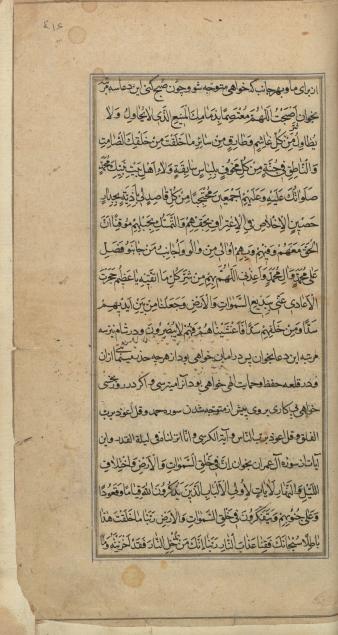 از برای ما و بهر جانب که خواهی متوجه شو و چون صبح کنی این دعا سه مرتبه
بخوان اصبحت اللهم معتصما بذمامك المنيع الذي لا يحاول ولا
يطاول من كل غاشم وطارق من سائر ما خلقت من خلقك الصامت
والناطق في جنة من كل مخوف بلباس سابغة ولاء اهل بيت نبيك محمد
صلواتك عليه وعليهم اجمعين محتجبا من كل قاصد لي باذية بجدار
حصين الاخلاص في الاعتراف بحقهم والتمسك بحبلهم موقنا ان
الحق معهم وفيهم وبهم اوالي من والوا واجانب من جانبوا فصل
على محمد وآل محمد واعذني اللهم بهم من شر كل ما اتقيه يا عظيم حجزت
الاعادي عني ببديع السموات والارض وجعلنا من بين ايديهم
سدا ومن خلفهم سدا فاغشيناهم فهم لا يبصرون و در شام نیز سه
مرتبه این دعا بخوان پس در امان خواهی بود از هر چه حذر میکنی از آن
و در قلعه حفظ و حمایت الهی خواهی بود از آنچه میترسی و اگر در روز نحسی
خواهی پی کاری بروی پیش از متوجه شدن سوره حمد و قل اعوذ برب
الفلق و قل اعوذ برب الناس و آیة الکرسی و انا انزلناه في ليلة القدر و این
آیات از سوره آل عمران بخوان ان في خلق السموات والارض واختلاف
الليل والنهار لآيات لاولي الالباب الذين يذكرون الله قياما وقعودا
وعلى جنوبهم ويتفكرون في خلق السموات والارض ربنا ما خلقت هذا
باطلا سبحانك فقنا عذاب النار ربنا انك من تدخل النار فقد اخزيته وما